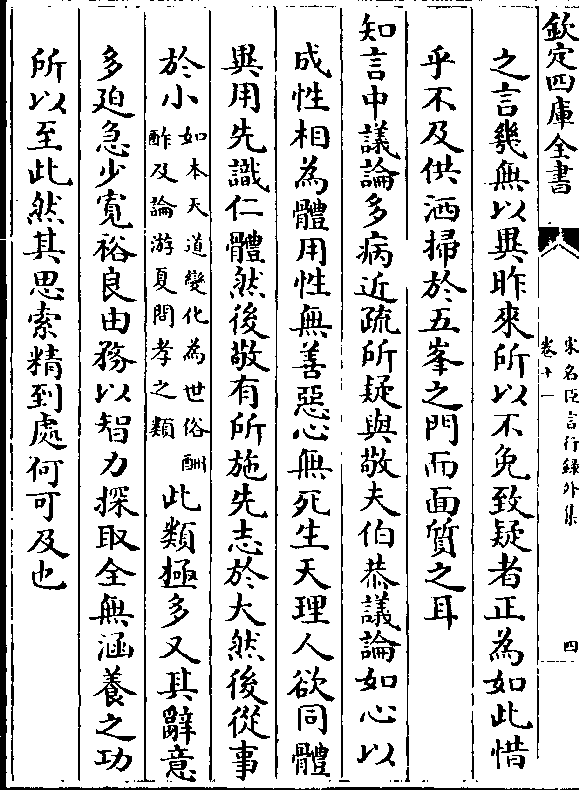 欽定四庫全書
宋名臣言行録外集
卷十一
四
之言幾無以異昨來所以不免致疑者正為如此惜
乎不及供洒掃於五峯之門而面質之耳
知言中議論多病近疏所疑與敬夫伯恭議論如心以
成性相為體用性無善惡心無死生天理人欲同體
異用先識仁體然後敬有所施先志於大然後從事
於小如本天道變化為世俗酬酢及論游夏問孝之類此類極多又其辭意
多迫急少寛裕良由務以智力探取全無涵養之功
所以至此然其思索精到處何可及也